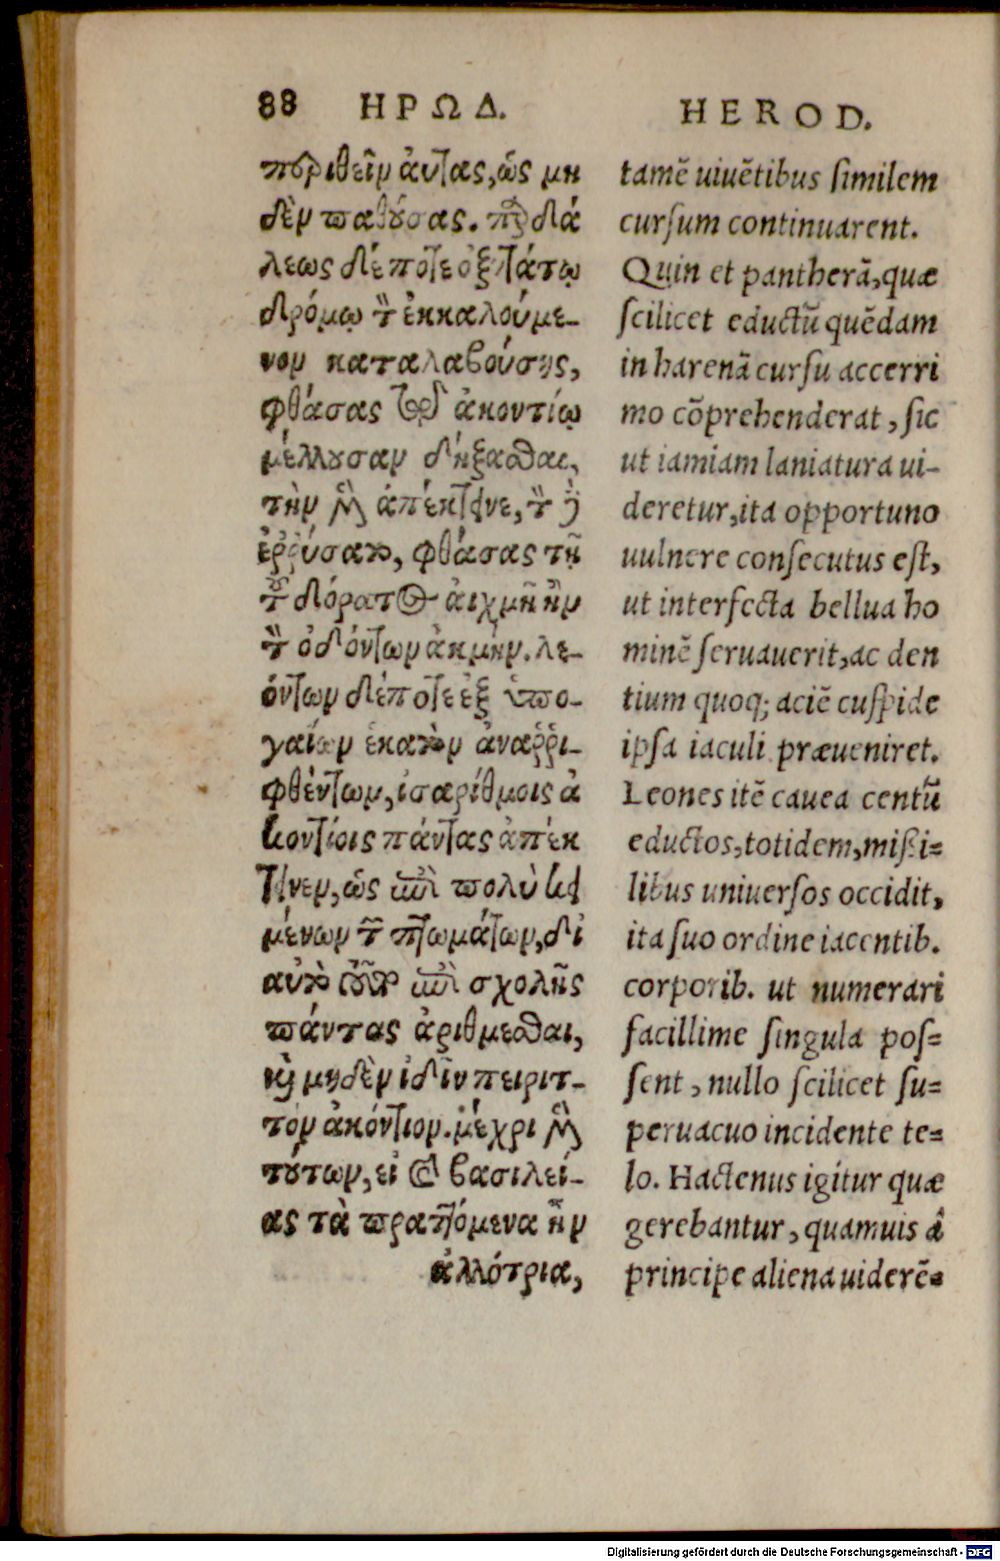 88 ΗΡΩΔ. HEROD.
περιθεῖν αὐτὰς, ὡς μη
δὲν παθούσας. παρδά
λεως δέ ποτε ὀξυτάτῳ
δρόμῳ τὸν ἐκκαλούμε-
νον καταλαβούσης,
φθάσας τῷ ἀκοντίῳ
μέλλουσαν δήξασθαι,
τὴν μὲν ἀπέκτεινε, τὸν δὲ
ἐῤῥύσατο, φθάσας τῇ
τοῦ δόρατος αἰχμῇ ἢν
τῶν ὀδόντων ἀκμήν. λε-
όντων δέ ποτε ἐξ ὑπο-
γαίων ἑκατὸν ἀναῤῥι-
φθέντων, ἰσαρίθμοις ἀ
κοντίοις πάντας ἀπέκ
τεινεν, ὡς ἐπὶ πολὺ κει
μένων τῶν πτωμάτων, δι
αὐτὸ τοῦτο ἐπὶ σχολῆς
πάντας ἀριθμεῖσθαι,
καὶ μηδὲν ἰδεῖν πειριτ-
τὸν ἀκόντιον. μέχρι μὲν
τούτων, εἰ καὶ βασιλεί-
ας τὰ πραττόμενα ἦν
ἀλλότρια,
tamē uiuētibus similem
cursum continuarent.
Quin et pantherā, quæ
scilicet eductū quēdam
in harenā cursu accerri
mo cōprehenderat, sic
ut iamiam laniatura ui-
deretur, ita opportuno
uulnere consecutus est,
ut interfecta bellua ho
minē seruauerit, ac den
tium quoq; aciē cuspide
ipsa iaculi præueniret.
Leones itē cauea centū
eductos, totidem, missi=
libus uniuersos occidit,
ita suo ordine iacentib.
corporib. ut numerari
facillime singula pos=
sent, nullo scilicet su=
peruacuo incidente te=
lo. Hactenus igitur quæ
gerebantur, quamuis â
principe aliena uiderē=
Digitalisierung gefördert durch die Deutsche Forschungsgemeinschaft - DFG